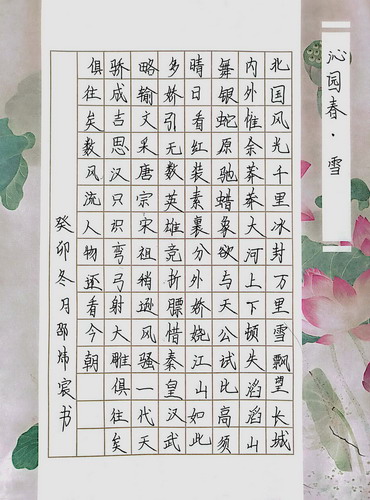 沁园春·雪
北国风光千里冰封万里雪飘望长城
内外惟余莽莽大河上下顿失滔滔山
舞银蛇原驰蜡象欲与天公试比高须
晴日看红装素裹分外娇烧江山如此
多娇引无数英雄竞折膘惜秦皇汉武
略输文采唐宗宋祖稍逊风骚一代天
骄成吉思汉只识弯弓射大雕俱往矣
俱往矣数风流人物还看今朝
癸卯冬月邵炜宸书